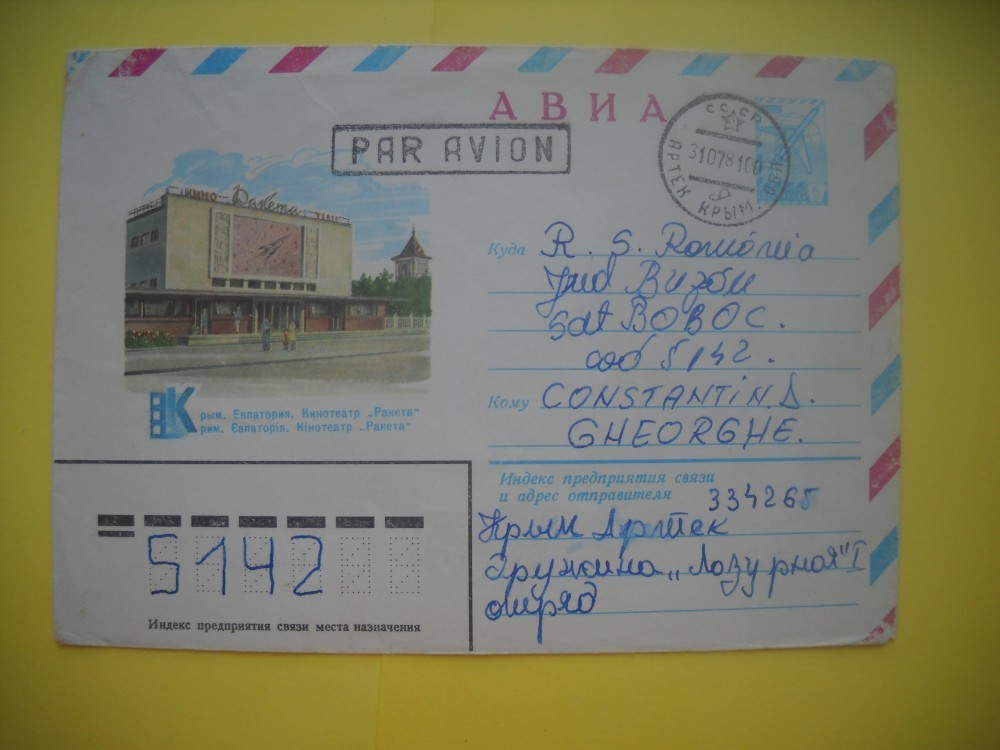 АВИА
PAR AVION
СССР
31078100
АРТЕК КРЫМ. ОБЛ.
КИНО Ракета
Крым. Евпатория. Кинотеатр „Ракета“
Крим. Євпаторія. Кінотеатр „Ракета“
Куда R. S. România
Jud Buzău
Sat BOBOC.
cod 5142.
Кому CONSTANTIN. D.
GHEORGHE.
Индекс предприятия связи
и адрес отправителя 334265
Крым Артек
дружина „Лазурная" I
отряд
5142
Индекс предприятия связи места назначения